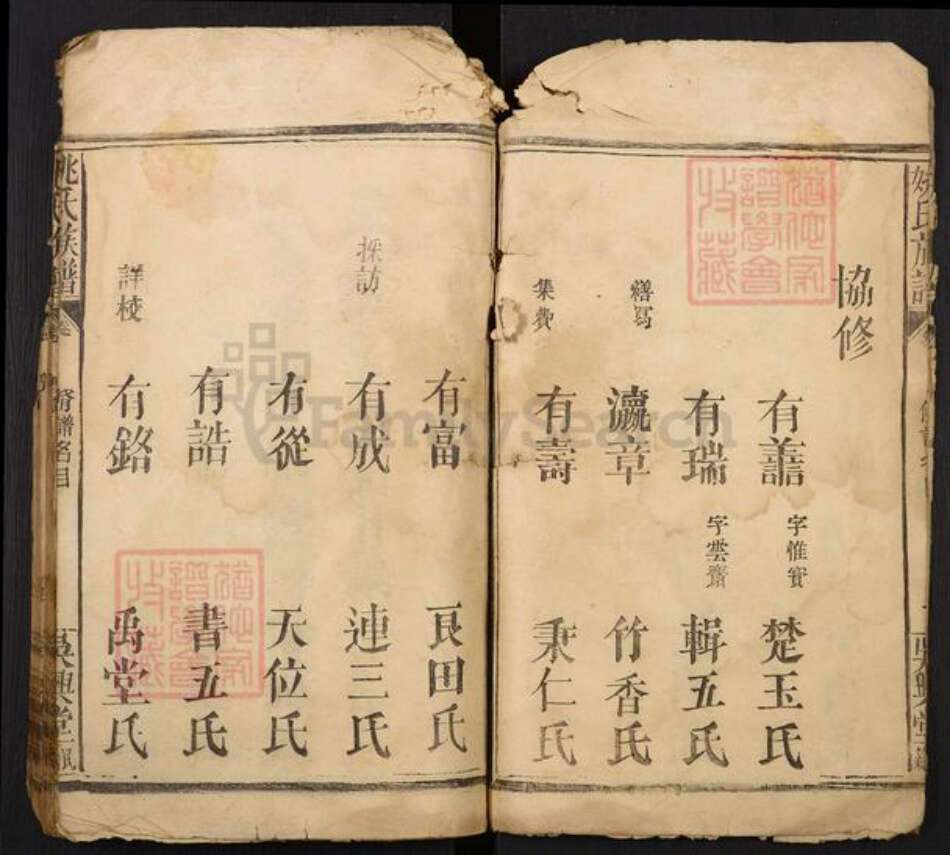 協修
有譱 字惟寶 楚玉氏
有瑞 字雲齋 輯五氏
繕寫 瀛章 竹香氏
集費 有壽 秉仁氏
有富 良田氏
採訪 有成 連三氏
有從 天位氏
有誥 書五氏
詳校 有鉻 禹堂氏
姚氏族譜
脩譜名目
吳興堂
FamilySearch
猶他家譜學會收藏
猶他家譜學會收藏